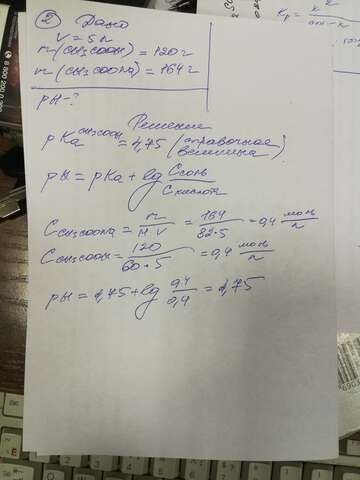 ② Дано
V = 5 л
m (CH3COOH) = 120 г
m (CH3COONa) = 164 г
pH - ?
Решение
pKa CH3COOH = 4,75 (справочная величина)
pH = pKa + lg Cсоль / Cкислот
C CH3COONa = m / M V = 164 / 82·5 = 0,4 моль/л
C CH3COOH = 120 / 60·5 = 0,4 моль/л
pH = 4,75 + lg 0,4 / 0,4 = 4,75